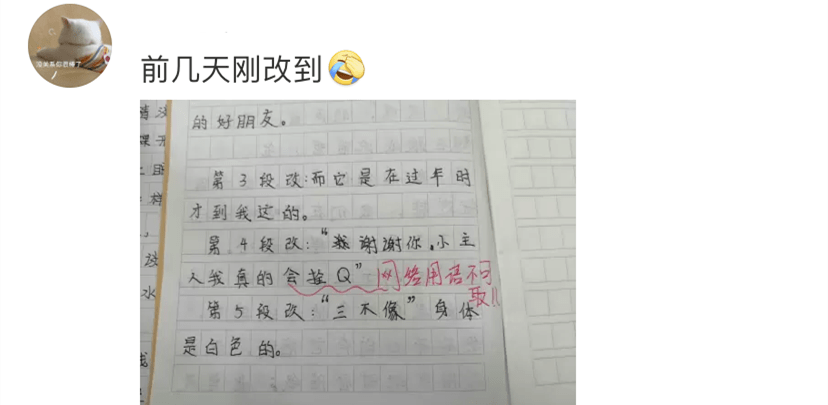 没关系你很棒了
前几天刚改到🤣
的好朋友。
第3段改:而它是在过年时
才到我这的。
第4段改:“我谢谢你,小主
人我真的会蚌Q”网络用语不可
取!!
第5段改:“三不像”身体
是白色的。